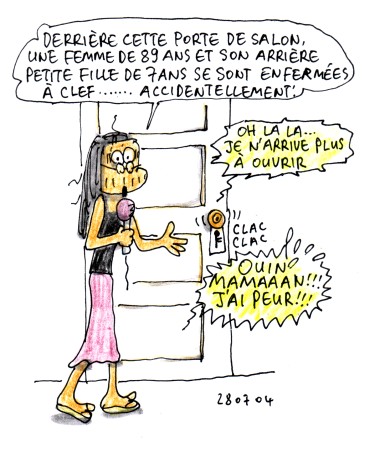 DERRIÈRE CETTE PORTE DE SALON,
UNE FEMME DE 89 ANS ET SON ARRIÈRE
PETITE FILLE DE 7 ANS SE SONT ENFERMÉES
À CLEF....... ACCIDENTELLEMENT.
OH LA LA...
JE N'ARRIVE PLUS
À OUVRIR
CLAC
CLAC
OUIN
MAMAAAN!!!
J'AI PEUR!!!
280704